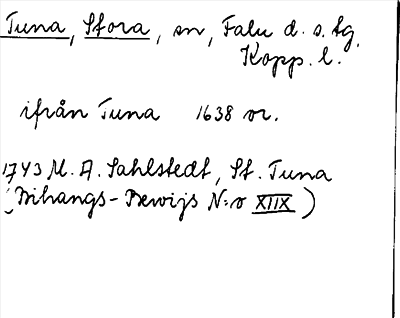 Tuna, Stora, sn, Falu d. s. tg.
Kopp. l.
ifrån Tuna 1638 or.
1743 M. A. Sahlstedt, St. Tuna
(Bihangs-Bewijs N:o XIIX)